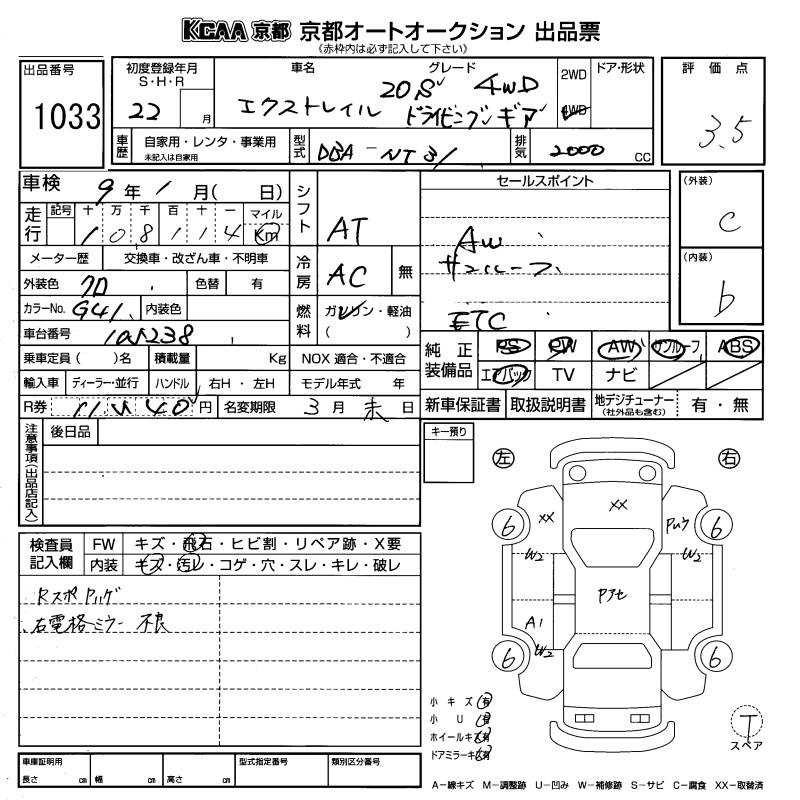 KCAA 京都 京都オートオークション 出品票
《赤枠内は必ず記入して下さい》
出品番号
1033
初度登録年月
S・H・R
22 月
車名
エクストレイル
グレード
20S 4WD
ドライビングギア
2WD
4WD
ドア・形状
評価点
3.5
車歴
自家用・レンタ・事業用
未記入は自家用
型式
DBA-NT31
排気
2000 CC
車検
9年1月( 日)
走行
記号 十 万 千 百 十 一 マイル
1 0 8 1 1 4 Km
メーター歴 交換車・改ざん車・不明車
外装色 クロ 色替 有
カラーNo. G41 内装色
車台番号
乗車定員( )名 積載量 Kg
輸入車 ディーラー・並行 ハンドル 右H・左H
R券 円 名変期限 3月末日
シフト AT
冷房 AC 無
燃料 ガソリン・軽油
( )
NOX 適合・不適合
モデル年式 年
セールスポイント
AW
サンルーフ
ETC
(外装)
C
(内装)
b
純正装備品
PS PW AW サンルーフ ABS
エアバック TV ナビ
新車保証書 取扱説明書 地デジチューナー
(社外品も含む)
有・無
注意事項(出品店記入)
後日品
キー預り
左 右
検査員記入欄
FW キズ・飛石・ヒビ割・リペア跡・X要
内装 キズ・汚レ・コゲ・穴・スレ・キレ・破レ
Rスポハゲ
右電格ミラー不良
XX
XX
6
6
W2
W2
Pアセ
A1
W2
6
6
小キズ 有
小U 有
ホイールキズ 有
ドアミラーキズ 有
T
スペア
車庫証明用
長さ cm 幅 cm 高さ cm
型式指定番号
類別区分番号
A−線キズ M−調整跡 U−凹み W−補修跡 S−サビ C−腐食 XX−取替済